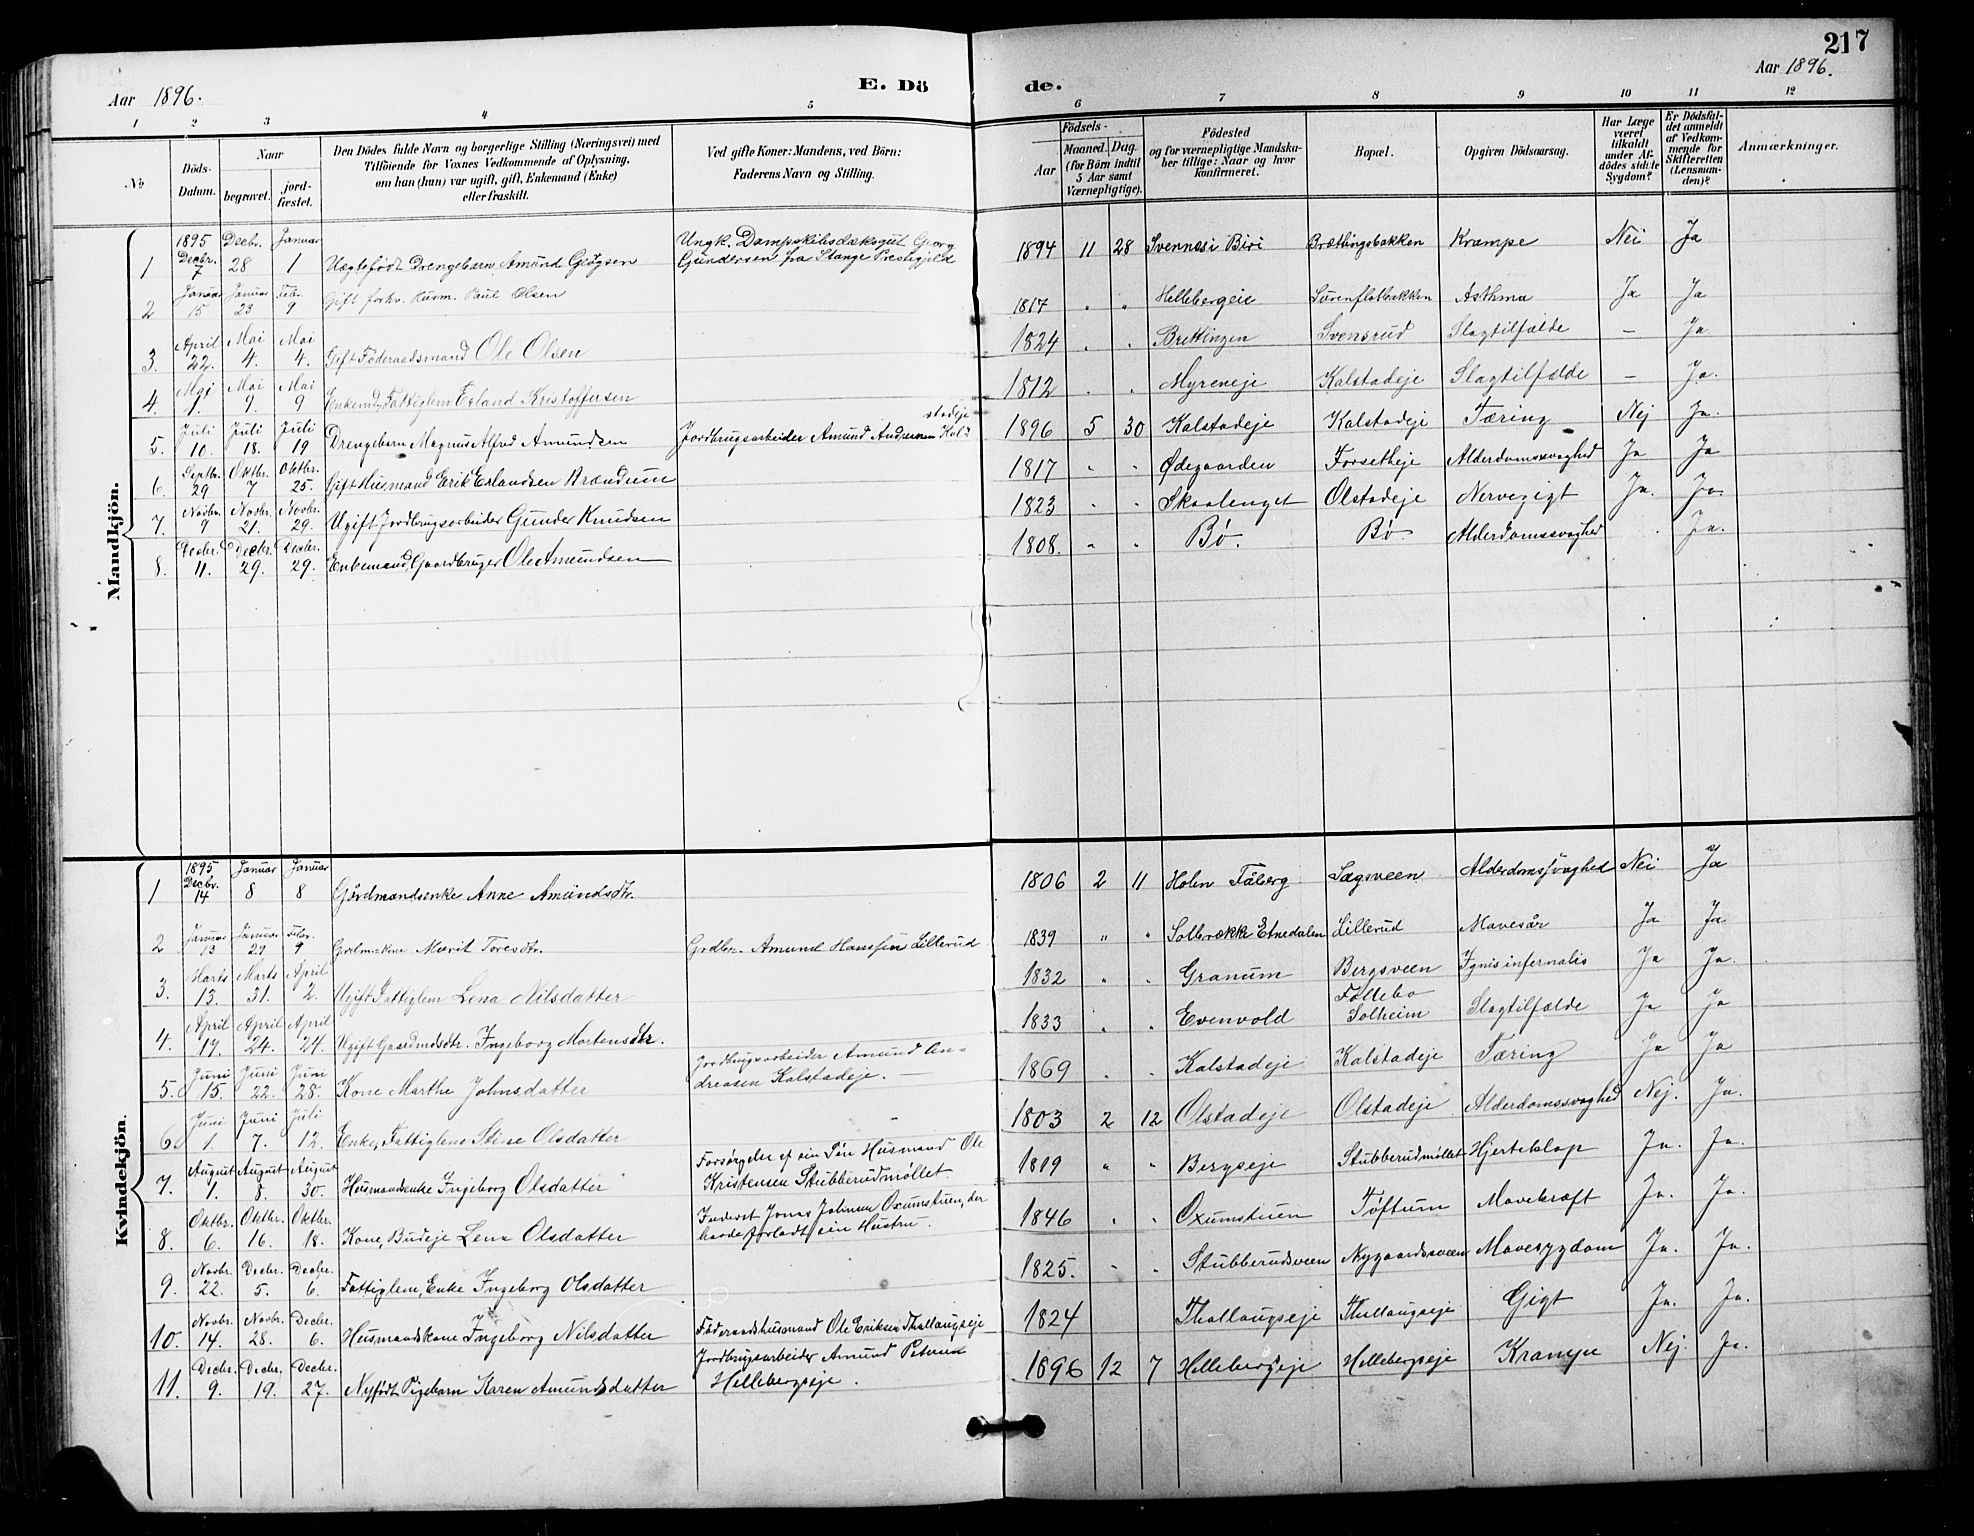 217
Aar 1896.
E. Dö
de.
Aar 1896.
1 2 3 4 5 6 7 8 9 10 11 12
No
Döds-Datum.
Naar
begravet.
jord-fæstet.
Den Dödes fulde Navn og borgerlige Stilling (Næringsvei) med
Tilföiende for Voxnes Vedkommende af Oplysning,
om han (hun) var ugift, gift, Enkemand (Enke)
eller fraskilt.
Ved gifte Koner: Mandens, ved Börn:
Faderens Navn og Stilling.
Födsels-
Aar
Maaned. Dag.
(for Börn indtil
5 Aar samt
Værnepligtige).
Födested
og for værnepligtige Mandska-
ber tillige: Naar og hvor
konfirmeret.
Bopæl.
Opgiven Dödsaarsag.
Har Læge
været
tilkaldt
under Af-
dödes sidste
Sygdom?
Er Dödsfal-
det anmeldt
af Vedkom-
mende for
Skifteretten
(Lensman-
den)?
Anmærkninger.
Mandkjön.
1 1895 Decbr. 7 Decbr. 28 Januar 1 Uægtefødt Drengebarn Amund Geogsen Ungk. Dampskibsdæksgut Georg
Gundersen fra Stange Prestegjeld 1894 11 28 Svennes i Biri Brætlingsbakken Krampe Nei Ja
2 Januar 15 Januar 23 Febr. 9 Gift forhv. Husm. Paul Olsen 1817 " " Hellebergeie Surenflotbakken Asthma Ja Ja
3. April 22. Mai 4. Mai 4. Gift Føderaadsmand Ole Olsen 1824 " " Brettingen Svensrud Slagtilfælde – Ja
4. Mai 1. Mai 9. Mai 9 Enkemd, Fattiglem Erland Kristoffersen 1812 " " Myreneje Kalstadeje Slagtilfælde – Ja.
5. Juli 10. Juli 18. Juli 19 Drengebarn Magnus Alfred Amundsen Jordbrugsarbeider Amund Andreasen Kal-
stadeje 1896 5 30 Kalstadeje Kalstadeje Tæring Nej Ja.
6. Septbr. 29 Oktbr. 7 Oktbr. 25. Gift Husmand Erik Erlandsen Brændum 1817 " " Ødegaarden Forsetheje Alderdomssvaghed Ja Ja
7. Novbr. 9 Novbr. 21. Novbr. 29. Ugift Jordbrugsarbeider Gunder Knudsen 1823 " " Skaalenget Olstadeje Nervegigt Ja. Ja.
8. Decbr. 11. Decbr. 29. Decbr. 29. Enkemand, Gaardbruger Ole Amundsen 1808. " " Bø. Bø Alderdomssvaghed Ja.
Kvindekjön.
1 1895 Decbr. 14 Januar 8 Januar 8 Gårdmandsenke Anne Amundsdtr. 1806 2 11 Holen Fåberg Sagsveen Alderdomssvaghed Nei Ja
2 Januar 13 Januar 29 Febr. 9 Grdm-kone Marit Toresdtr. Grdbr. Amund Hanssen Lillerud 1839 " " Solbrække Etnedalen Lillerud Mavesår Ja Ja
3. Marts 13. Marts 31. April 2. Ugift Fattiglem Lena Nilsdatter 1832 " " Granum Bergsveen Ignis infernalis Ja Ja.
4. April 17. April 24. April 24. Ugift Gaardmdsdtr. Ingeborg Mortensdtr. 1833 " " Evenvold Føllebo
Solheim Slagtilfælde Ja Ja
5. Juni 15. Juni 22. Juni 28. Kone Marthe Johnsdatter Jordbrugsarbeider Amund An-
dreasen Kalstadeje. – 1869 " " Kalstadeje Kalstadeje Tæring Ja Ja
6. Juni 1. Juni 7. Juli 12. Enke, Fattiglem Stine Olsdatter 1803 2 12 Olstadeje Olstadeje Alderdomssvaghed Nej. Ja.
7. August 1. August 8. August 30. Husmandsenke Ingeborg Olsdatter Forsørgelse af sin Søn Husmand Ole
Kristensen Stubberudmøllet. 1819 " " Bergseje Stubberudmøllet Hjerteklap Ja. Ja.
8. Oktbr. 6. Oktbr. 16. Oktbr. 18. Kone, Budeje Lena Olsdatter Inderst Jonas Johnsen Oxumstuen, der
havde forladt sin Hustru. 1846 " " Oxumstuen Tøftum Mavekræft Ja. Ja.
9. Novbr. 22. Decbr. 5. Decbr. 6. Fattiglem, Enke Ingeborg Olsdatter 1825. " " Stubberudsveen Nygaardssveen Mavesygdom Ja. Ja.
10. Novbr. 14. Novbr. 28. Decbr. 6. Husmandskone Ingeborg Nilsdatter Føderaadshusmand Ole Eriksen Thallaugseje 1824 Thallaugseje Thallaugseje Gigt Ja. Ja.
11. Decbr. 9. Decbr. 19. Decbr. 27. Nyfødt Pigebarn Karen Amundsdatter Jordbrugsarbeider Amund Petersen
Hellebergseje. 1896 12 7 Hellebergseje Hellebergseje Krampe Nej. Ja.